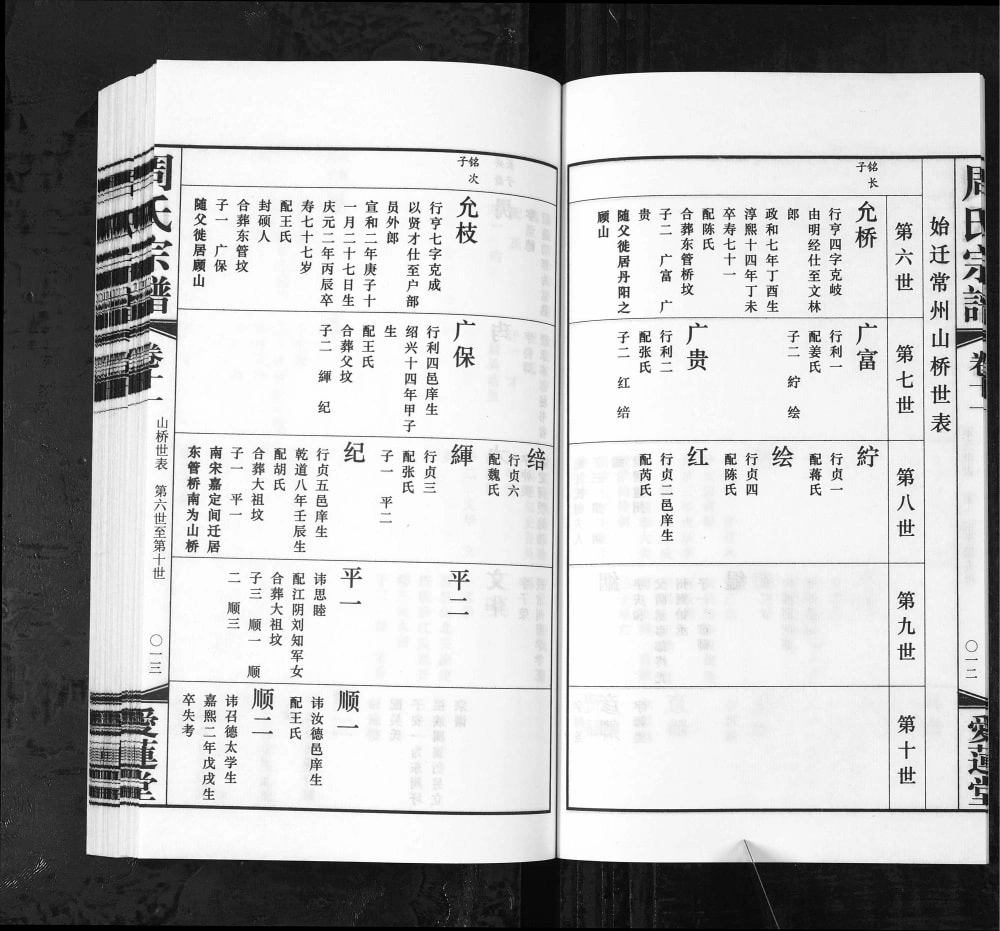 周氏宗譜
卷十一
〇一二
愛蓮堂
始迁常州山桥世表
第六世
第七世
第八世
第九世
第十世
铭长
子
允桥
行亨四字克岐
由明经仕至文林
郎
政和七年丁酉生
淳熙十四年丁未
卒寿七十一
配陈氏
合葬东管桥坟
子二 广富 广
贵
随父徙居丹阳之
顾山
广富
行利一
配姜氏
子二 紵 绘
广贵
行利二
配张氏
子二 红 绤
紵
行贞一
配蒋氏
绘
行贞四
配陈氏
红
行贞二邑庠生
配芮氏
铭次
子
允枝
行亨七字克成
以贤才仕至户部
员外郎
宣和二年庚子十
一月二十七日生
庆元二年丙辰卒
寿七十七岁
配王氏
封硕人
合葬东管坟
子一 广保
随父徙居顾山
广保
行利四邑庠生
绍兴十四年甲子
生
配王氏
合葬父坟
子二 緷 纪
绤
行贞六
配魏氏
緷
行贞三
配张氏
子一 平二
纪
行贞五邑庠生
乾道八年壬辰生
配胡氏
合葬大祖坟
子一 平一
南宋嘉定间迁居
东管桥南为山桥
平二
平一
讳思睦
配江阴刘知军女
合葬大祖坟
子三 顺一 顺
二 顺三
顺一
讳汝德邑庠生
配王氏
顺二
讳召德太学生
嘉熙二年戊戌生
卒失考
周氏宗譜
卷十一
山桥世表 第六世至第十世
〇一三
愛蓮堂